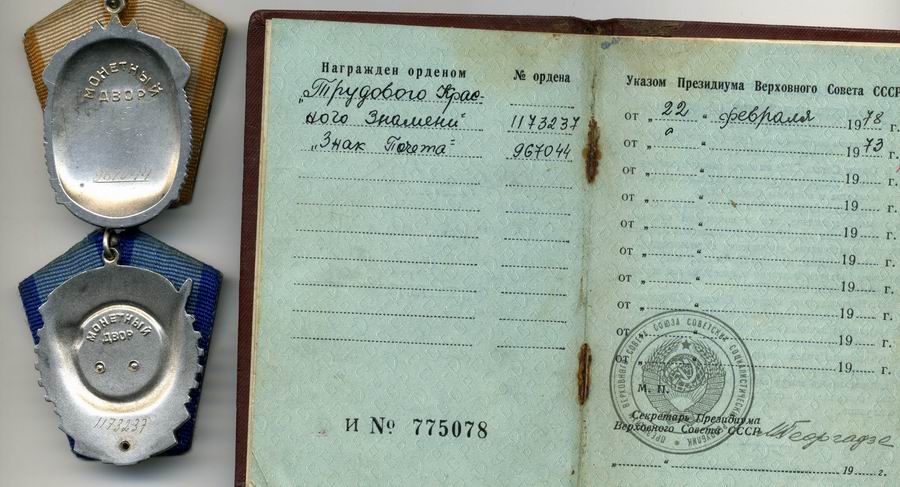 МОНЕТНЫЙ
ДВОР
967044
МОНЕТНЫЙ
ДВОР
1173237
Награжден орденом № ордена
„Трудового Крас-
ного Знамени" 1173237
„Знак Почета" 967044
И № 775078
Указом Президиума Верховного Совета СССР
от „ 22 “ февраля 1978 г.
от „ “ 1973 г.
от „ “ 19 г.
от „ “ 19 г.
от „ “ 19 г.
от „ “ 19 г.
от „ “ 19 г.
от „ “ 19 г.
от „ “ 19 г.
от „ “ 19 г.
М. П.
Секретарь Президиума
Верховного Совета СССР МГеоргадзе
„ “ 19 г.